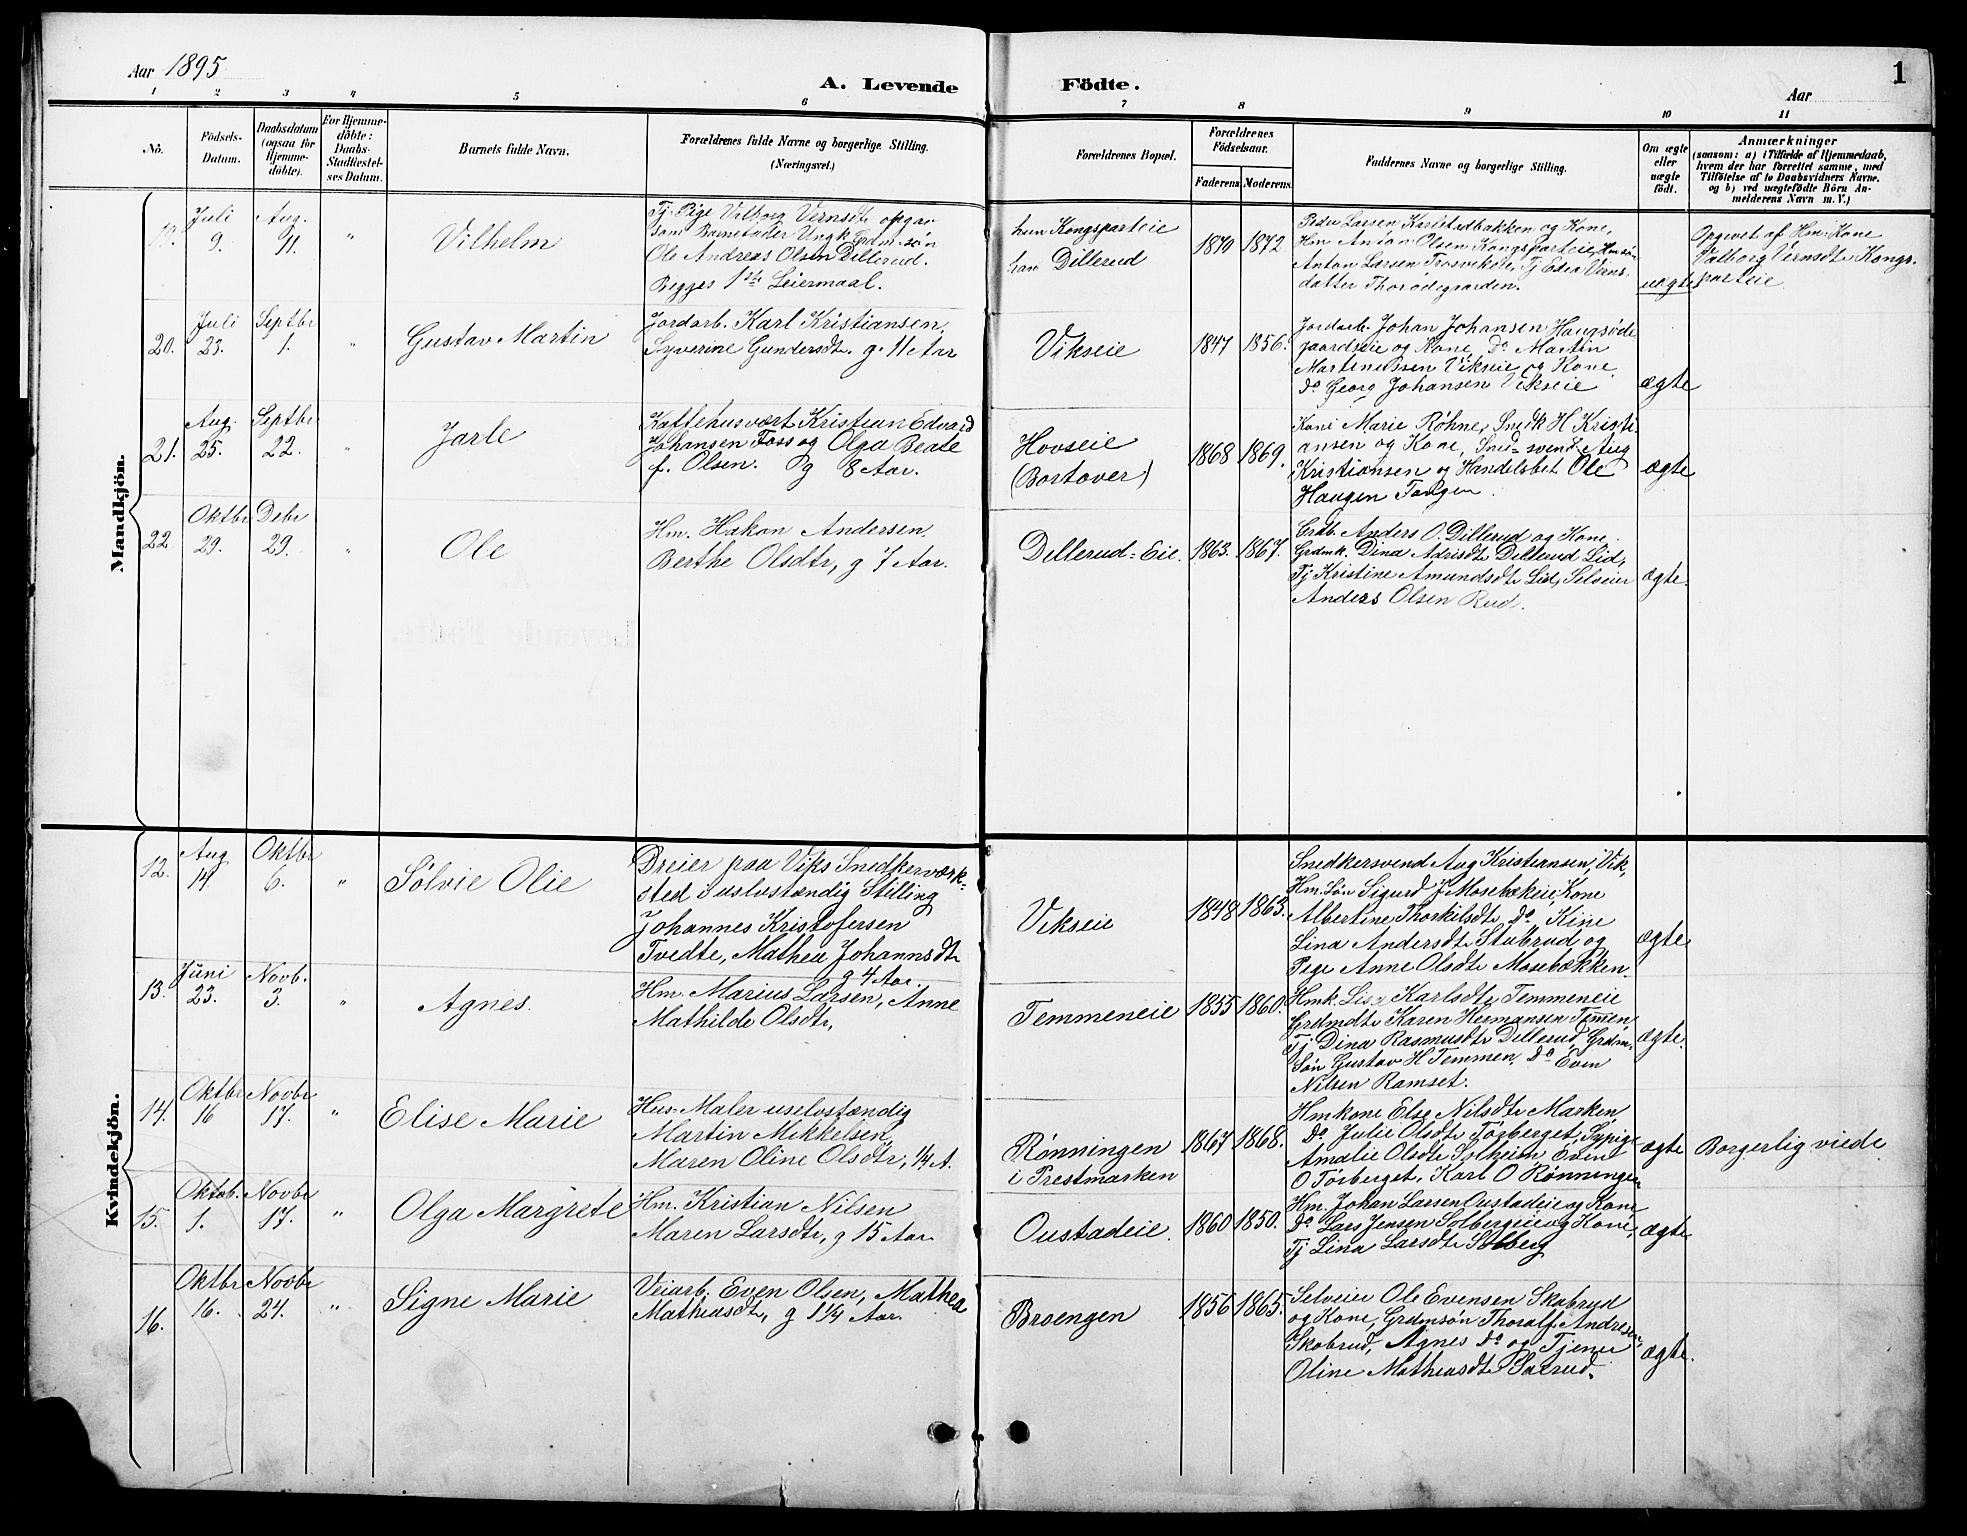 Aar 1895
A. Levende Födte.
Aar
1
1 2 3 4 5 6 7 8 9 10 11
Nö.
Födsels-Datum.
Daabsdatum (ogsaa for Hjemme-döbte).
For Hjemme-döbte: Daabs-Stadfæstel-ses Datum.
Barnets fulde Navn.
Forældrenes fulde Navne og borgerlige Stilling. (Næringsvei.)
Forældrenes Bopæl.
Forældrenes Födselsaar.
Faderens Moderens.
Faddernes Navne og borgerlige Stilling.
Om ægte eller uægte födt.
Anmærkninger
(saasom: a) i Tilfælde af Hjemmedaab,
hvem der har forrettet samme, med
Tilföielse af to Daabsvidners Navne.
og b) ved uægtefödte Börn An-
melderens Navn m. V.)
Mandkjön.
19. Juli 9. Aug. 11. " Vilhelm
Tj. Pige Valborg Vernsdt. opgav
som Barnefader Ungk. Grdm.søn
Ole Andreas Olsen Dillerud.
Begges 1ste Leiermaal.
hun Kongsparteie
han Dillerud
1870 1872
Peder Larsen Karlstadbakken og Kone,
Hm Anton Olsen Kongsparteie, Hm søn
Anton Larsen Trosvikeie, Tj Edea Verns-
datter Thorødegaarden.
uægte
Opgivet af Hm. Kone
Valborg Vernsdt. Kongs-
parteie
20. Juli 23. Septbr 1. " Gustav Martin
Jordarb. Karl Kristiansen,
Syverine Gundersdt. g. 11 Aar
Vikseie
1847 1856.
Jordarb. Johan Johansen Haugsøde
gaardseie og Kone, Do Martin
Martinussen Vikseie og Kone
Do Georg Johansen Vikseie
ægte
21. Aug. 25. Septbr 22. " Jarle
Kaffehusvært Kristian Edvard
Johansen Foss og Olga Beate
f. Olsen. g 8 Aar.
Hovseie
(Bortover)
1868 1869.
Kone Marie Røhne, Snedk H Kristi-
ansen og Kone, Sned-svend Aug
Kristiansen og Handelsbet. Ole
Haugen Tangen.
ægte
22 Oktbr 29. Debr 29. " Ole
Hm. Hakon Andersen.
Berthe Olsdtr, g 7 Aar.
Dillerud-Eie.
1863. 1867.
Grdb. Anders O. Dillerud og Kone.
Grdmk. Dina Adrisdt. Dillerud Lid,
Tj Kristine Amundsdt. Lid, Selveier
Anders Olsen Rud.
ægte.
Kvindekjön.
12. Aug 14. Oktbr 6. " Sølvie Olie
Dreier paa Viks Snedkerværk-
sted i uselvstændig Stilling
Johannes Kristofersen
Tvedte, Mathea Johannsdt.
g 4 Aar.
Vikseie
1848 1863.
Snedkersvend Aug Kristiansen, Vik,
Hm.Søn Sigurd J Mosebækeie, Kone
Albertine Thorkilsdt. Do Kine
Lina Andersdt. Stubrud og
Pige Anne Olsdt. Mosebækken.
ægte
13. Juni 23. Novb. 3. " Agnes.
Hm. Marius Larsen, Anne
Mathilde Olsdtr,
Temmeneie
1855 1860.
Hmk. Lise Karlsdt. Temmeneie
Grdmdt. Karen Hermansen Temmen,
Tj Dina Rasmusdt. Dillerud, Grdm-
Søn Gustav H Temmen, Do Even
Nilsen Ramset.
ægte.
14. Oktbr 16 Novbr 17. " Elise Marie
Hus: Maler uselvstændig
Martin Mikkelsen,
Maren Oline Olsdtr, 1/4 A.
Rønningen
i Prestmarken
1867 1868.
Hmkone Else Nilsdt. Marken
Do Julie Olsdt. Torberget, Sypige
Amalie Olsdt. Solheim Even
O Torberget, Karl O Rønningen
ægte
Borgerlig viede
15. Oktob. 1. Novbr 17. " Olga Margrete
Hm. Kristian Nilsen
Maren Larsdtr, g 15 Aar.
Oustadeie.
1860 1850.
Hm. Johan Larsen Oustadeie og Kone
Do Lars Jensen Solbergeie og Kone,
Tj Lina Larsdt. Solberg
ægte
16. Oktbr 16. Novbr 24. " Signe Marie
Veiarb. Even Olsen, Mathea
Mathiasdt., g 1 1/4 Aar.
Broengen
1856 1865.
Selveier Ole Evensen Skabrud
og Kone, Grdmsøn Thoralf Andresen,
Skabrud, Agnes Do og Tjener
Oline Mathiasdt. Saxrud.
ægte.